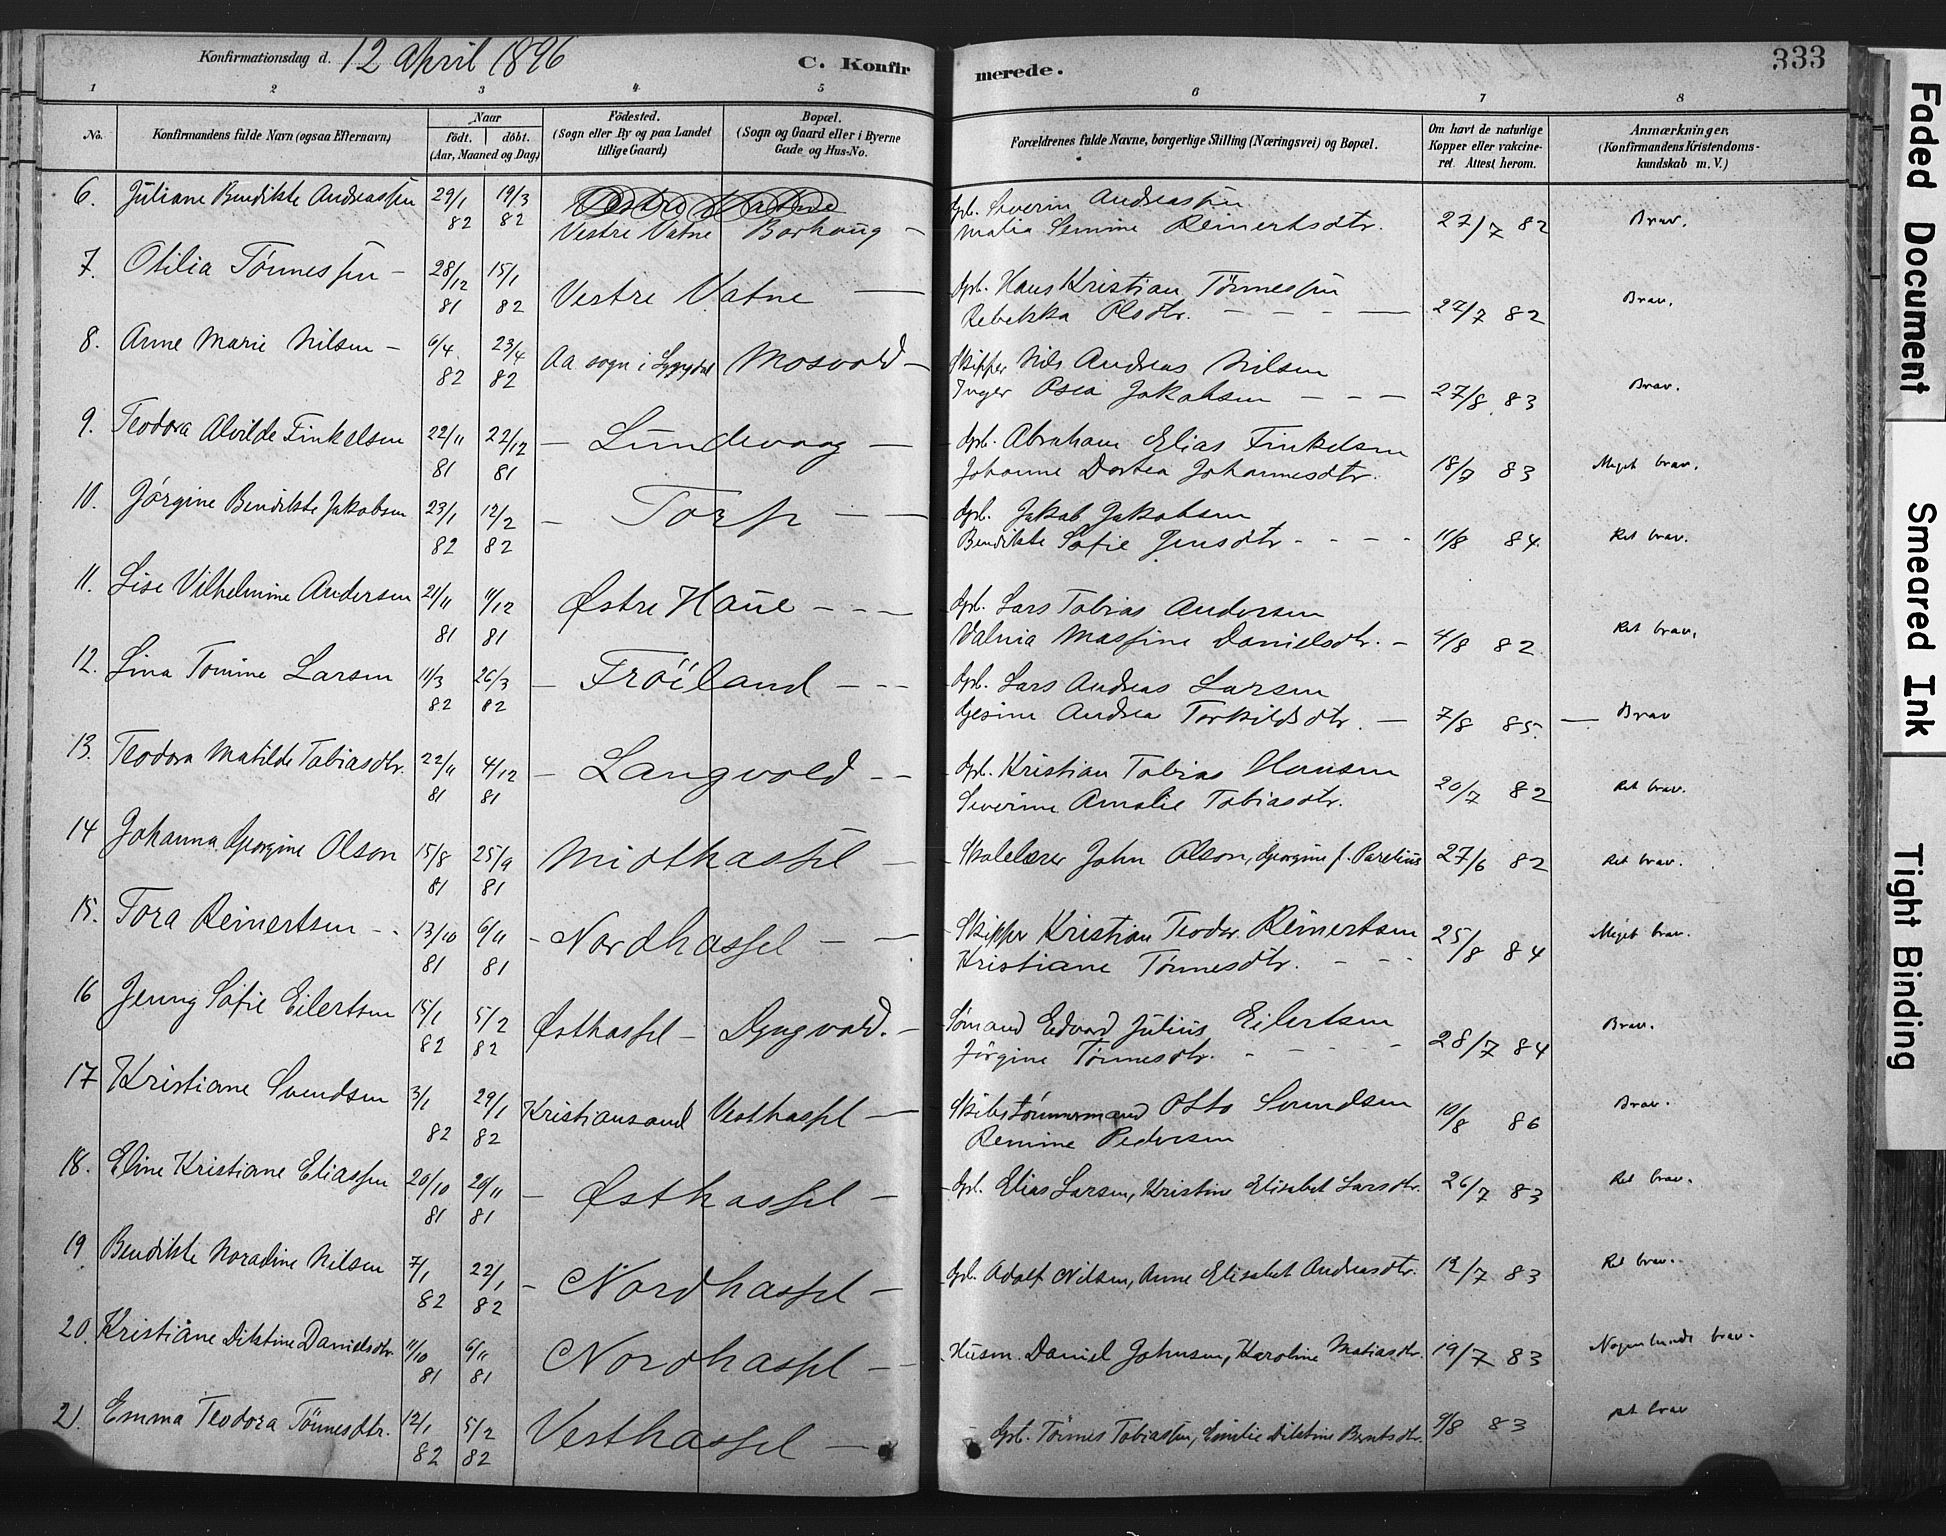 Konfirmationsdag d. 12 April 1896
C. Konfirmerede.
333
1 2 3 4 5 6 7 8
No.
Konfirmandens fulde Navn (ogsaa Efternavn)
Naar
födt. döbt.
(Aar, Maaned og Dag)
Födested.
(Sogn eller By og paa Landet
tillige Gaard)
Bopæl.
(Sogn og Gaard eller i Byerne
Gade og Hus-No.
Forældrenes fulde Navne, borgerlige Stilling (Næringsvei) og Bopæl.
Om havt de naturlige
Kopper eller vakcine-
ret. Attest herom.
Anmærkninger,
(Konfirmandens Kristendoms-
kundskab m. V.)
6. Juliane Bendikte Andreassen 29/1 82 19/3 82 Vestre Vatne Borhaug - Gpb. Severin Andreassen
Malia Semine Reinertsdtr. 27/7 82 Brav.
7. Otilia Tönnessen - 28/12 81 15/1 82 Vestre Vatne - Gpb. Hans Kristian Tönnessen
Rebekka Olsdtr. - - - - 27/7 82 Brav.
8. Anne Marie Nilsen - 6/4 82 23/4 82 Aa sogn i Lyngdal Mosvold - Skipper Nils Andreas Nilsen
Inger Osea Jakobsen - - - 27/8 83 Brav.
9. Teodora Alvilde Finkelsen 22/11 81 22/12 81 - Lundevaag - Gpb. Abraham Elias Finkelsen
Johanne Dortea Johannesdtr. 18/7 83 Meget brav.
10. Jörgine Bendikte Jakobsen 23/1 82 12/2 82 - Torp - - Gpb. Jakob Jakobsen
Bendikte Sofie Jensdtr - - - - 11/8 84. Ret brav.
11. Lise Vilhelmine Andersen 21/11 81 11/12 81 Østre Haue - - - Gpb. Lars Tobias Andersen
Valnia Massine Danielsdtr. - 4/8 82 Ret brav.
12. Lina Tomine Larsen 11/3 82 26/3 82 - Fröiland - - - Gpb. Lars Andreas Larsen
Gesine Andrea Torkildsdtr. - 7/8 85. - Brav
13. Teodora Matilde Tobiasdtr. 22/11 81 4/12 81 - Langvold - - Gpb. Kristian Tobias Hansen
Severine Amalie Tobiasdtr. 20/7 82 Ret brav.
14 Johanna Georgine Olson 15/8 81 25/9 81 Midthassel - Skolelærer John Olson, Georgine f. Parelius 27/6 82 Ret brav.
15. Tora Reinertsen - - 13/10 81 6/11 81 - Nordhassel - - Skipper Kristian Teodor Reinertsen
Kristiane Tönnesdtr. - - - 25/8 84 Meget brav.
16 Jenny Sofie Eilertsen 15/1 82 5/2 82 Østhassel - Dyngvold. - Sömand Edvard Julius Eilertsen
Jörgine Tönnesdtr. - - - - 28/7 84 Brav.
17 Kristiane Svendsen 3/1 82 29/1 82 Kristiansand Vesthassel - Skibstömmermand Otto Svendsen
Remine Pedersen 10/8 86 Brav.
18. Eline Kristiane Eliassen 20/10 81 20/11 81 - Østhassel - Gpb. Elias Larsen, Kristine Elisabet Larsdtr. 26/7 83 Ret brav.
19 Bendikte Noradine Nilsen 7/1 82 22/1 82 - Nordhassel - Gpb. Adolf Nilsen, Anne Elisabet Andreasdtr. 12/7 83 Ret brav.
20. Kristiane Diktine Danielsdtr 11/10 81 6/11 81 Nordhassel - Husm. Daniel Johnsen, Karoline Matiasdtr. 19/7 83 Nogenlunde brav.
21. Emma Teodora Tönnesdtr. 12/1 82 5/2 82 Vesthassel - Gpb. Tönnes Tobiassen, Emilie Diktine Berntsdtr. 9/8 83 ret brav
Faded Document
Smeared Ink
Tight Binding